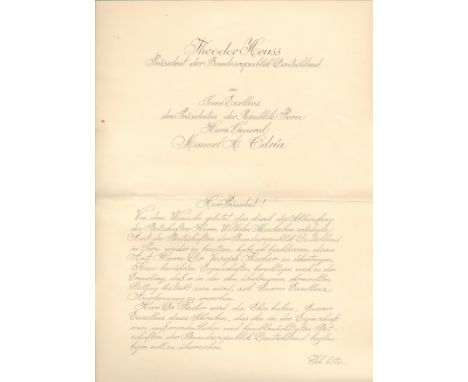 Theodor Heuss
Präsident der Bundesrepublik Deutschland
an
Seine Exzellenz
dem Präsidenten der Republik Peru
Herrn General
Manuel A. Odría
Herr Präsident!
Von dem Wunsche geleitet, das durch die Abberufung
des Botschafters Herrn Wilhelm Mackeben erledigte
Amt des Botschafters der Bundesrepublik Deutschland
in Peru wieder zu besetzen, habe ich beschlossen, dieses
Amt Herrn Dr. Joseph Fischer zu übertragen.
Seine bewährten Eigenschaften berechtigen mich zu der
Erwartung, daß er in der ihm übertragenen ehrenvollen
Stellung bestrebt sein wird, sich Eurer Exzellenz
Anerkennung zu erwerben.
Herr Dr. Fischer wird die Ehre haben, Eurer
Exzellenz dieses Schreiben, das ihn in der Eigenschaft
eines außerordentlichen und bevollmächtigten Bot-
schafters der Bundesrepublik Deutschland beglau-
bigen soll, zu überreichen.
Ich bitte